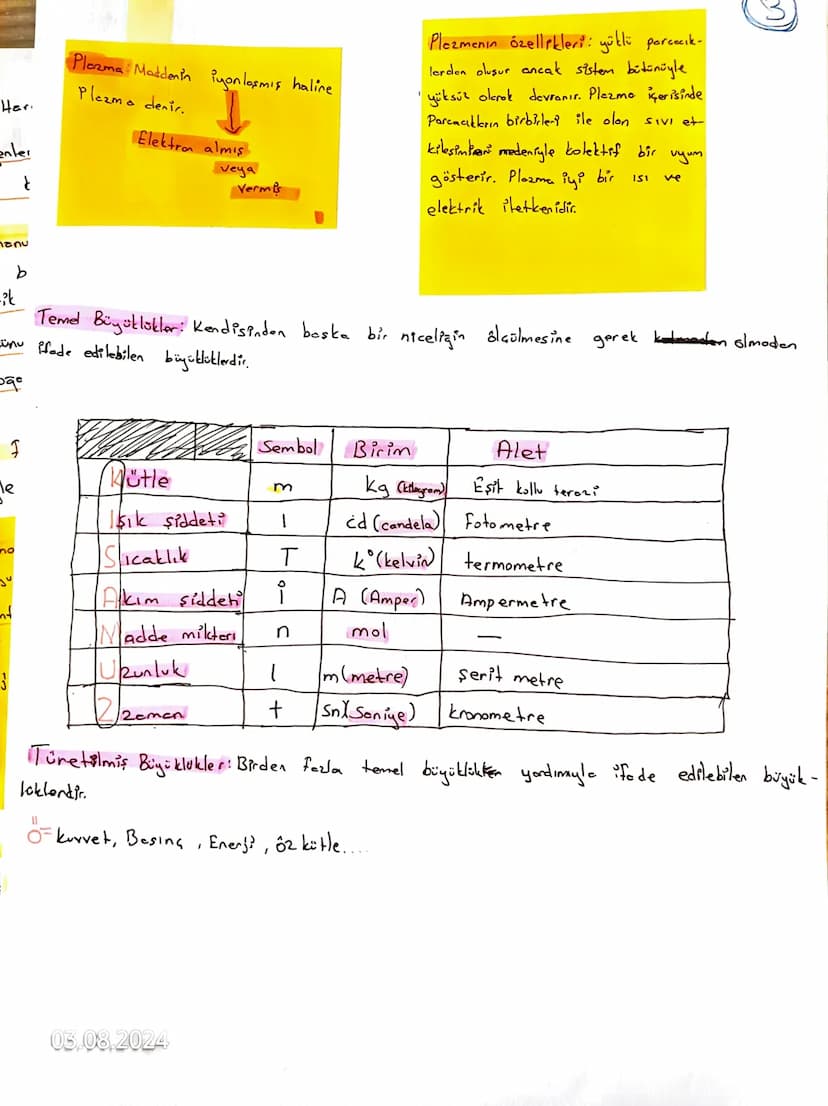 3
Plazma: Maddenin iyonlaşmış haline
Plazma denir.
Elektron almış
veya
Vermiş
Plazmanın özellikleri: yüklü parçacık-
lardan oluşur ancak sistem bütünüyle
yüksüz olarak davranır. Plazma içerisinde
Parçacıkların birbirleri ile olan sıvı et
kileşimleri nedeniyle kolektif bir uyum
gösterir. Plazma iyi bir ısı ve
elektrik iletkenidir.
Temel Büyüklükler: Kendisinden başka bir niceliğin ölçülmesine gerek olmadan
ifade edilebilen büyüklüklerdir.
Sembol Birim Alet
Kütle m Kg (kilogram) Eşit kollu terazi
Işık şiddeti I cd (candela) Fotometre
Sıcaklık T k° (kelvin) termometre
Akım şiddeti i A (Amper) Ampermetre
Madde miktarı n mol —
Uzunluk l m (metre) şerit metre
Zzaman t Sn (Saniye) kronometre
Türetilmiş Büyüklükler: Birden fazla temel büyüklükten yardımıyla ifade edilebilen büyük-
lüklerdir.
Ö= kuvvet, Basınç, Enerji, öz kütle....
Har.
enler
k
b
ik
le
03.08.2024